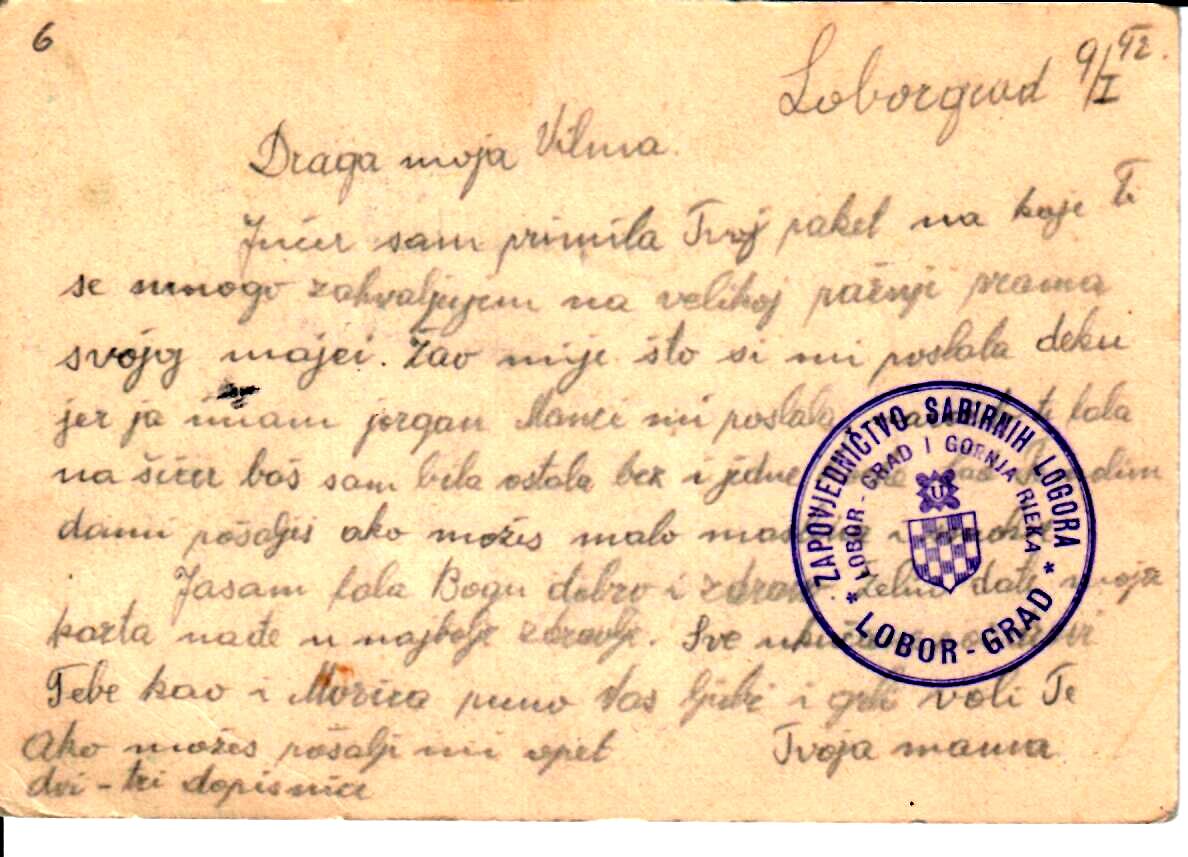 6
Loborgrad 9/I 42.
Draga moja Vilma.
Jučer sam primila Tvoj paket na koje Ti
se mnogo zahvaljujem na velikoj pažnji prama
svojoj majci. Žao mi je što si mi poslala deku
jer ja imam jorgan Mance mi poslala ti fala
na šićer baš sam bila ostala bez i jedne
dami pošalješ ako možeš malo
Jasam fala Bogu dobro i zdravo. Želim date moja
karta nađe u najbolje zdravlje. Sve
Tebe kao i Morica puno Vas ljubi i grli voli Te
Ako možeš pošalji mi opet Tvoja mama
dvi-tri dopisnice
ZAPOVJEDNIČTVO SABIRNIH LOGORA
LOBOR-GRAD I GORNJA RIEKA
U
* LOBOR-GRAD *